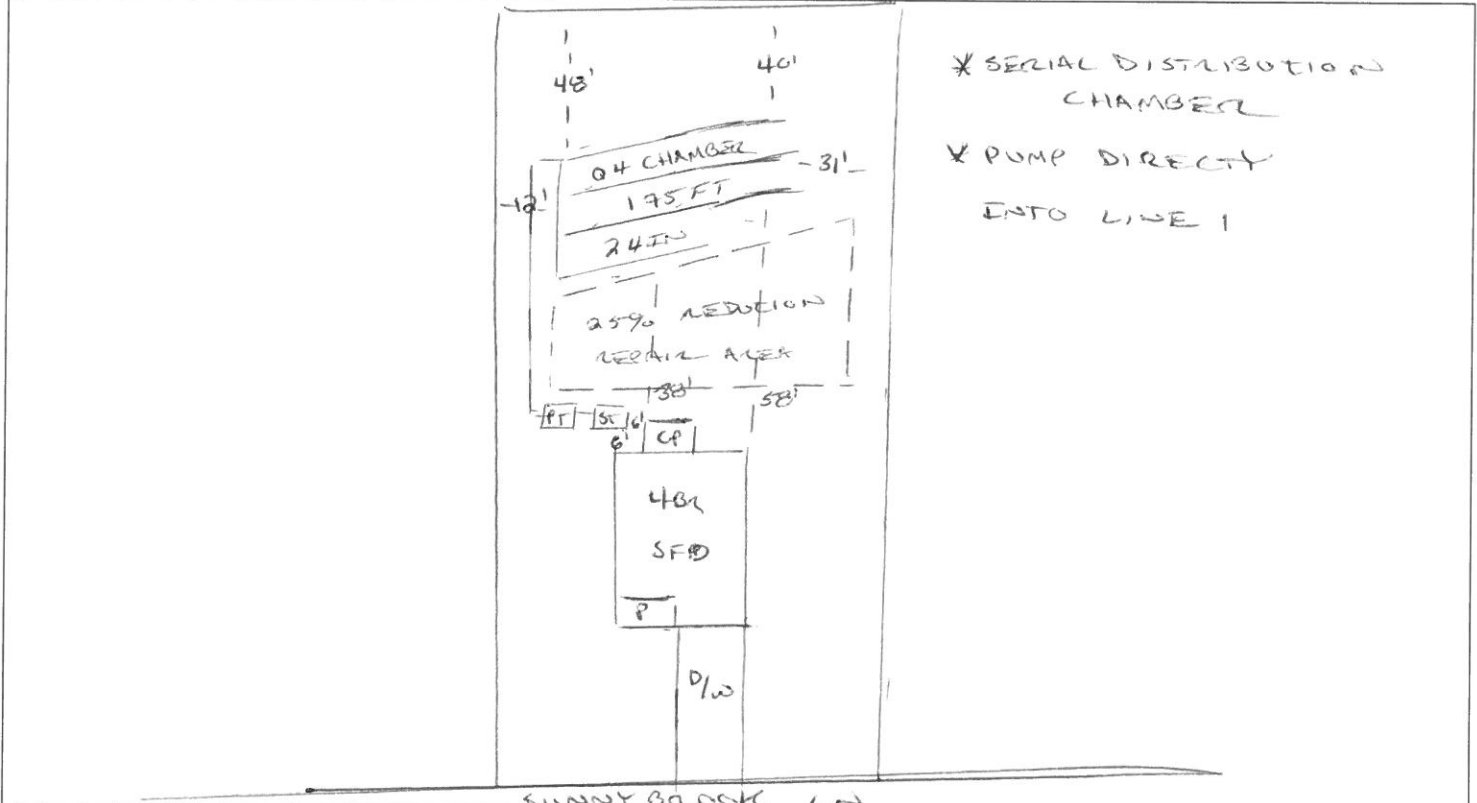 48'
40'
* SERIAL DISTRIBUTION
CHAMBER
* PUMP DIRECTY
INTO LINE 1
Q4 CHAMBER
175 FT
24 IN
-12'
-31'-
25% REDUTION
REPAIR AREA
38'
58'
PT
ST
6'
6'
CP
4BR
SFD
P
D/W
SUNNY BROOK LN